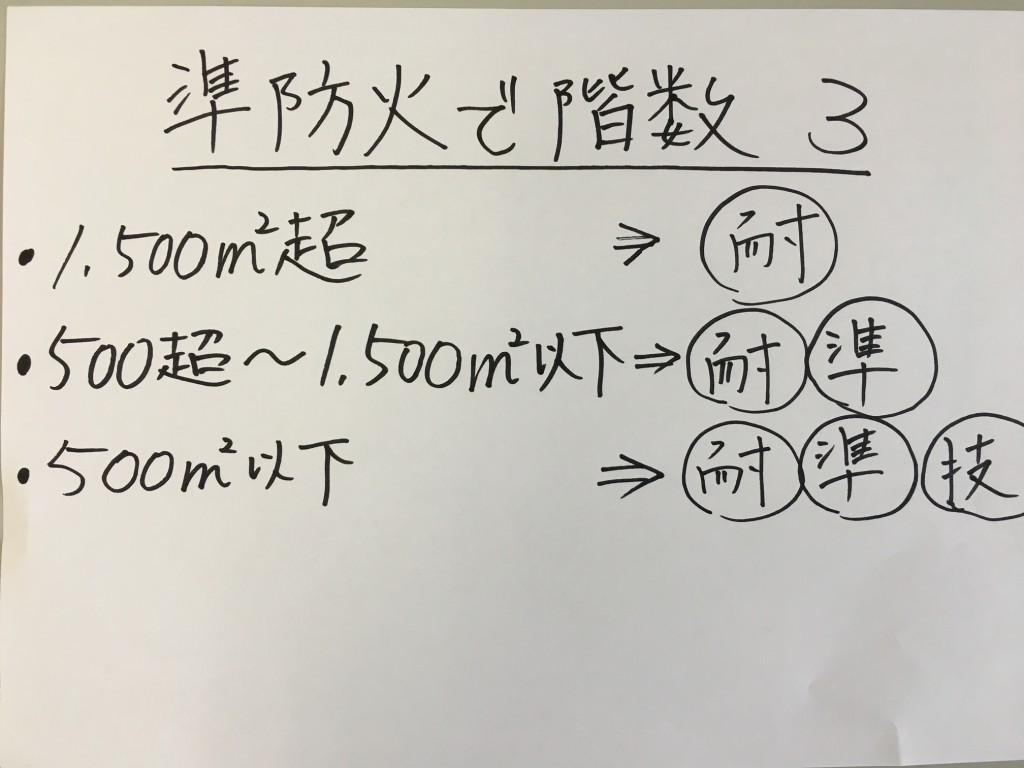 準防火で階数 3
・1.500m²超 ⇒ 耐
・500超～1.500m²以下⇒ 耐 準
・500m²以下 ⇒ 耐 準 技